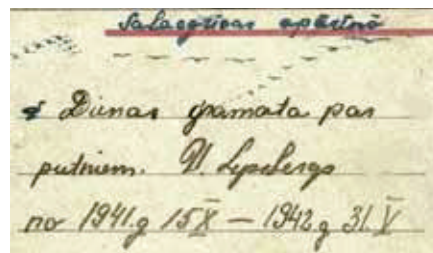 Salacgrīvas apkārtnē
Dienas grāmata par
putniem. P. Lepsbergs
no 1941.g 15 X — 1942.g 31. V